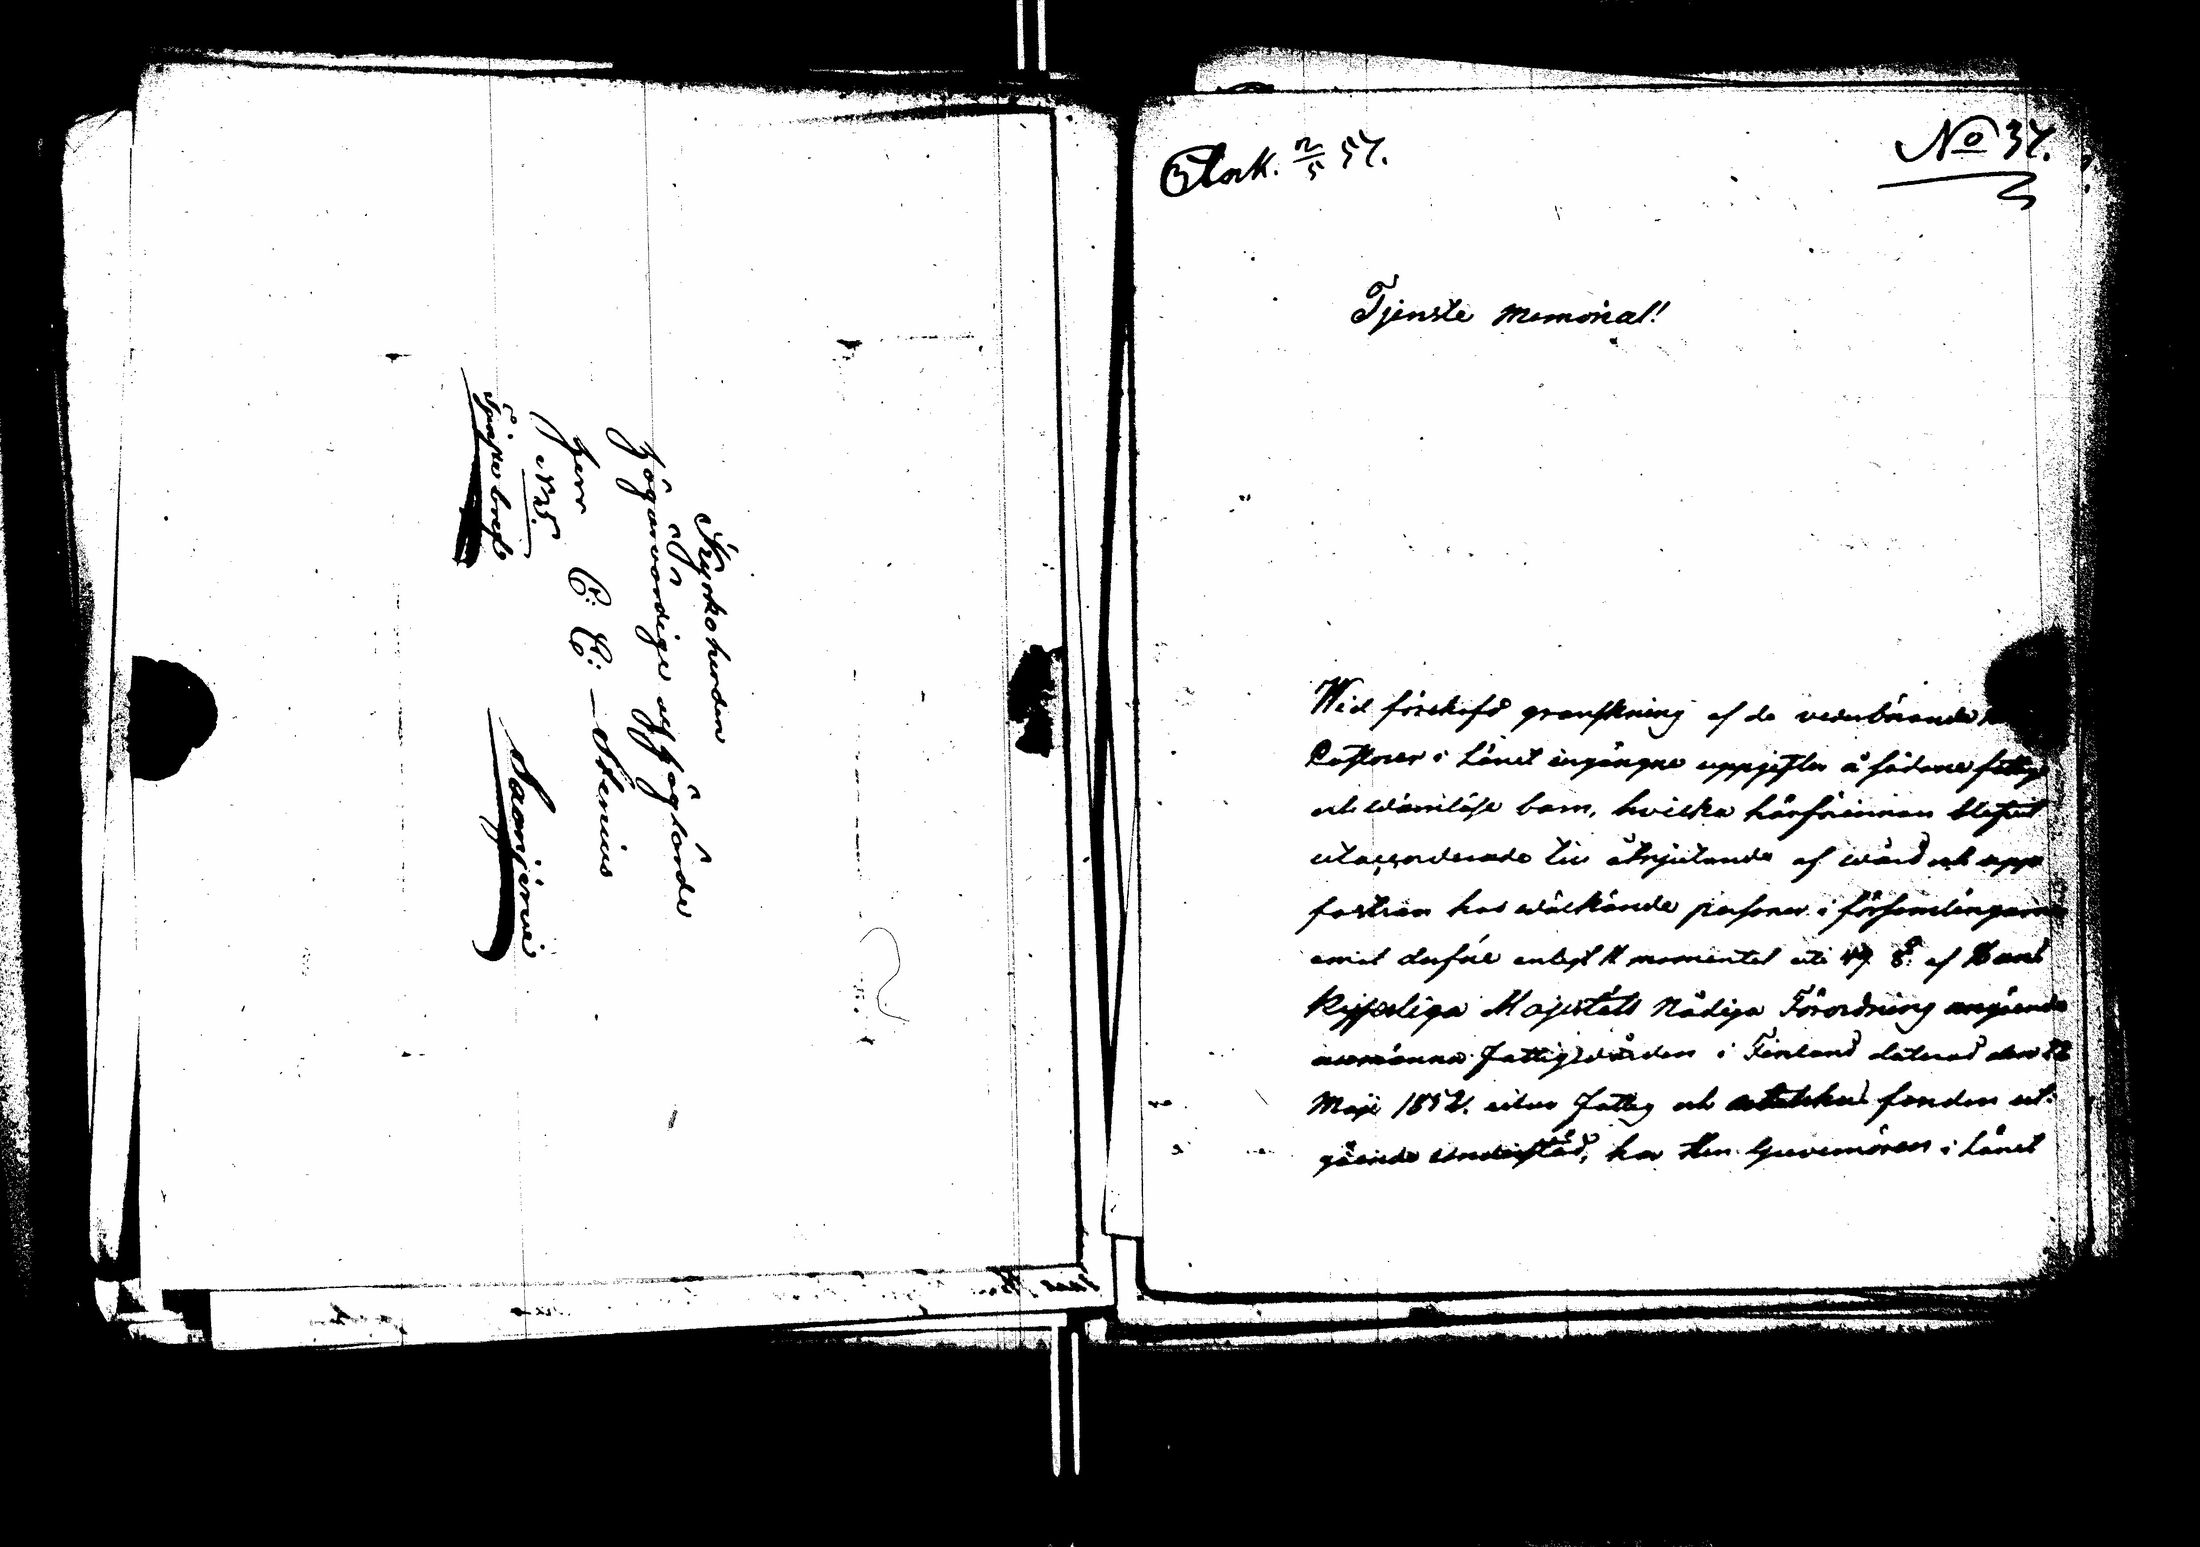 Kyrkoherden
Höganvördige och Höglärde
Herr C. C. Stenius
No 5.
Tjenstebref
Saarijärvi
Ank. 2/5 57.
No 37.
Tjenste Memorial!
Wid förehafd granskning af de vederbörande
Pastorer i Länet ingångne uppgifter å sådane fattige
och wärnlöse barn, hvilka härförinnan blifvit
utaccorderade till åtnjutande af wård och upp
fostran hos wälkände personer i församlingarne
emot derföre enligt momentet uti 49 §. af Hans
Kejserliga Majestäts Nådiga Förordning angående
allmänna Fattigvården i Finland daterad den 22
Maji 1852. utur Fattig och fonden ut-
gående understöd, har Herr Guvernören i Länet